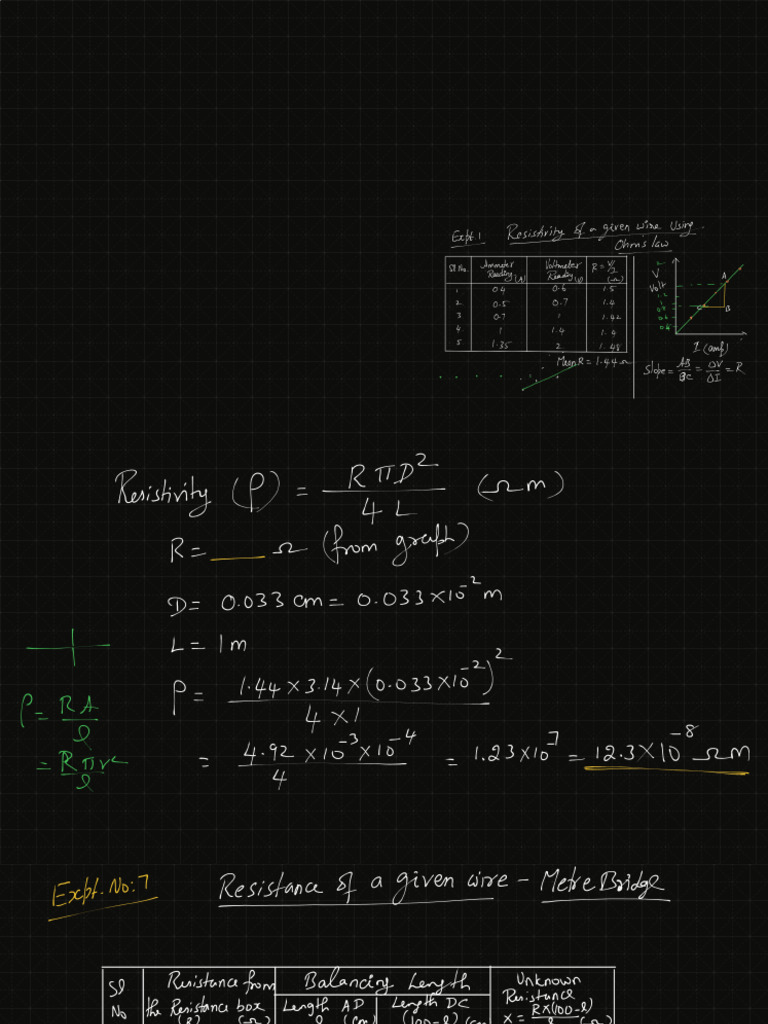 Expt 1 Resistivity of a given wire Using
Ohm's law
Sl No. Ammeter Reading (A) Voltmeter Reading (V) R = V/I (Ω)
1 0.4 0.6 1.5
2. 0.5 0.7 1.4
3 0.7 1 1.42
4. 1 1.4 1.4
5 1.35 2 1.48
Mean R = 1.44 Ω
V
Volt
A
B
C
I (amp)
Slope = AB/BC = ΔV/ΔI = R
Resistivity (ρ) = RπD²/4L (Ωm)
R = ____ Ω (from graph)
D = 0.033 cm = 0.033×10⁻² m
L = 1m
ρ = 1.44×3.14×(0.033×10⁻²)²/4×1
= 4.92×10⁻³×10⁻⁴/4 = 1.23×10⁻⁷ = 12.3×10⁻⁸ Ωm
ρ = RA/l
= Rπr²/l
Expt. No: 7 Resistance of a given wire – Metre Bridge
Sl No Resistance from the Resistance box (Ω) Balancing Length Unknown Resistance
Length AD l (cm) Length DC (100-l) (cm) X = R×(100-l)/l (Ω)